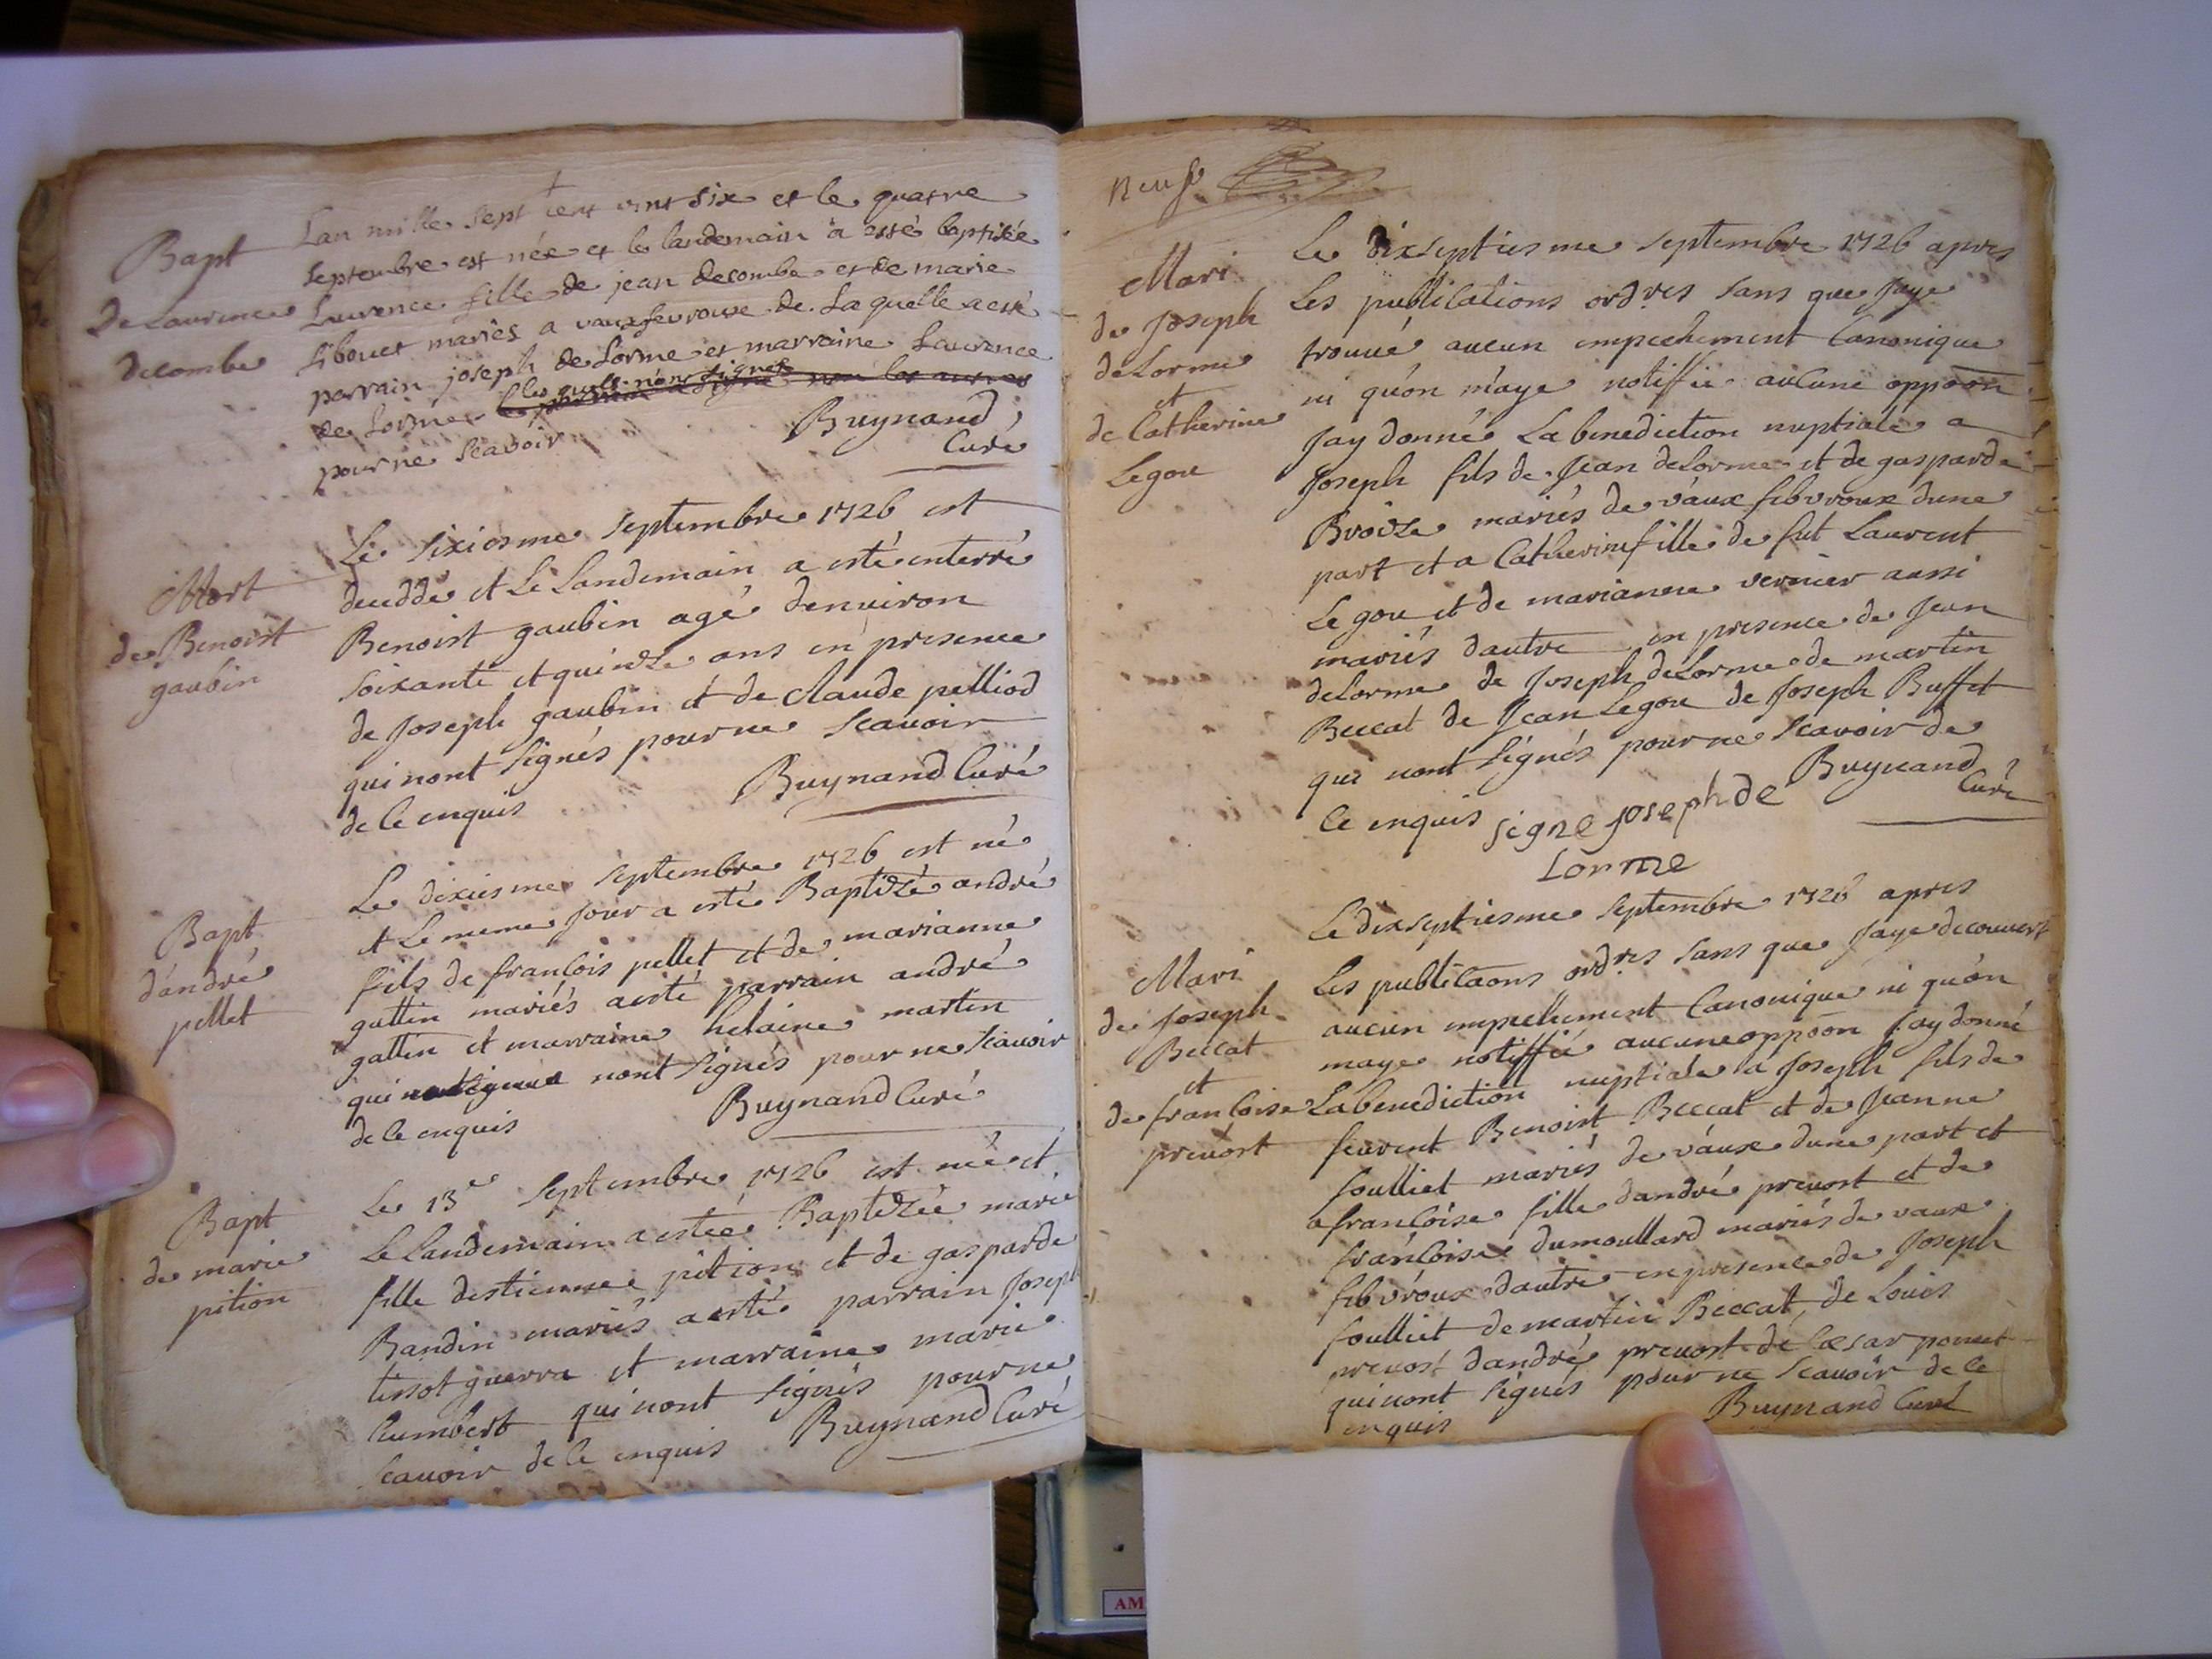 Bapt
de Laurence
decombe
Lan mille sept cent vint six et le quatre
septembre est née et le landemain a esté baptisée
Laurence fille de jean decombe et de marie
sibouet mariés a vauxfevroux de Laquelle a esté
parrain joseph de Lorme et marraine Laurence
de Lorme lesquels n'ont signés
pour ne scavoir
Buynand
Curé
Mort
de Benoist
gaubin
Le sixiesme septembre 1726 est
decedde et Le Landemain a esté enterré
Benoist gaubin agé denuiron
soixante et quinze ans en presence
de Joseph gaubin et de claude pelliod
qui nont signés pour ne scauoir
de le enquis Buynand Curé
Bapt
d'andré
pellet
Le dixiesme septembre 1726 est né
et Le meme Jour a esté Baptizé andré
fils de francois pellet et de marianne
gattin mariés a esté parrain andré
gattin et marraine helaine martin
qui nont signés pour ne scauoir
de le enquis Buynand Curé
Bapt
de marie
pition
Le 13e septembre 1726 est née et
Le Landemain a estée Baptizée marie
fille destienne pition et de gasparde
Bandin mariés a esté parrain Joseph
tissot guerra et marraine marie
humbert qui nont signés pour ne
scauoir de le enquis Buynand Curé
neuf
Mari
de Joseph
deLorme
et
de Catherine
Legou
Le dixseptiesme septembre 1726 apres
Les publications ordres sans que Jaye
trouué aucun empechement Canonique
ni qu'on m'aye notiffié aucune oppoon
Jay donné La benediction nuptiale a
Joseph fils de Jean deLorme et de gasparde
Broize mariés de vaux febvroux dune
part et a Catherine fille de fut Laurent
Legou et de marianne vernier aussi
mariés dautre en presence de Jean
deLorme de Joseph deLorme de martin
Beccat de Jean Legou de Joseph Buffet
qui nont signés pour ne scavoir de
ce enquis Buynand
Curé
signe joseph de
Lorme
Mari
de Joseph
Beccat
et
de francoise
preuost
Le dixseptiesme septembre 1726 apres
Les publicaons ordres sans que Jaye decouuert
aucun empechement Canonique ni qu'on
maye notiffié aucune oppoon Jay donné
La benediction nuptiale a Joseph fils de
feurent Benoist Beccat et de Jeanne
foulliet mariés de vaux dune part et
a francoise fille dandré preuost et de
francoise dumoullard mariés de vaux
febvroux dautre en presence de Joseph
foulliet de martin Beccat, de Louis
preuost dandré preuost de cæsar ponuet
qui nont signés pour ne scauoir de le
enquis Buynand Curé
AM